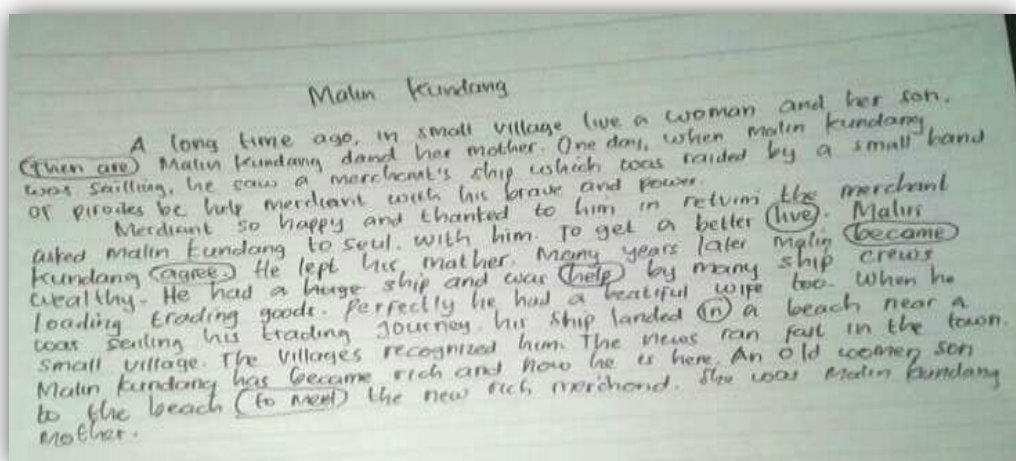 Malin Kundang
A long time ago, in small village live a woman and her son.
(then are) Malin Kundang dand her mother. One day, when Malin Kundang
was sailling, he saw a merchant's ship which was raided by a small band
of pirates be help merchant with his brave and power.
Merchant so happy and thanked to him in return the merchant
asked Malin Kundang to with him. To get a better (live). Malin
Kundang (agree.) He left his mother. Many years later Malin (became)
wealthy. He had a huge ship and was (help) by many ship crews
loading trading goods. Perfectly he had a beatiful wife too. When he
was sailing his trading journey. his ship landed (in) a beach near a
small village. The villages recognized him. The news ran fast in the town.
Malin Kundang has became rich and now he is here. An old women son
to the beach (to meet) the new rich merchand. She was Malin Kundang
Mother.